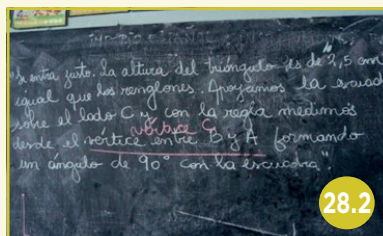 "Se entra justo. La altura del triángulo es de 2,5 cm
igual que los renglones. Apoyamos la escuad
sobre el lado C y con la regla medimos
vértice C
desde el vértice entre B y A formando
un ángulo de 90° con la escuadra".
28.2